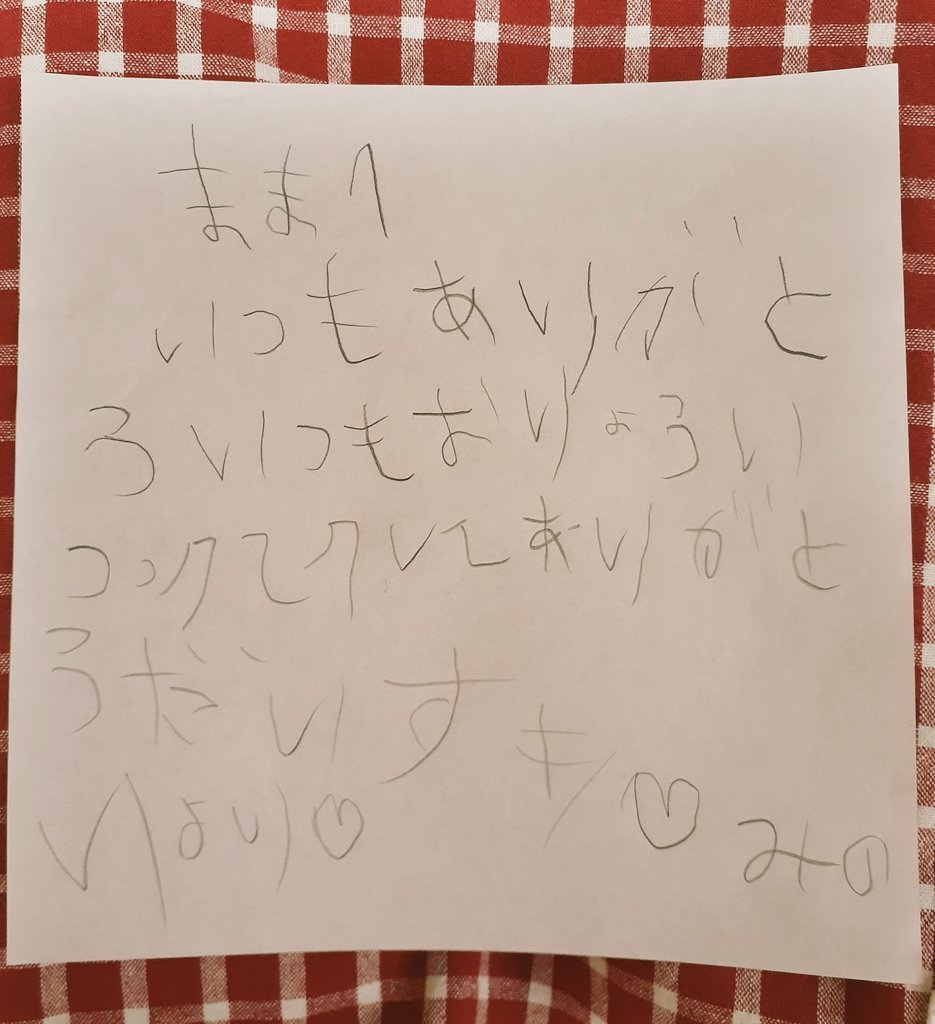 ままへ
いつもありがと
ろいつもおりょうい
つっクてクいてありがと
うだいすき♡みの
りより♡